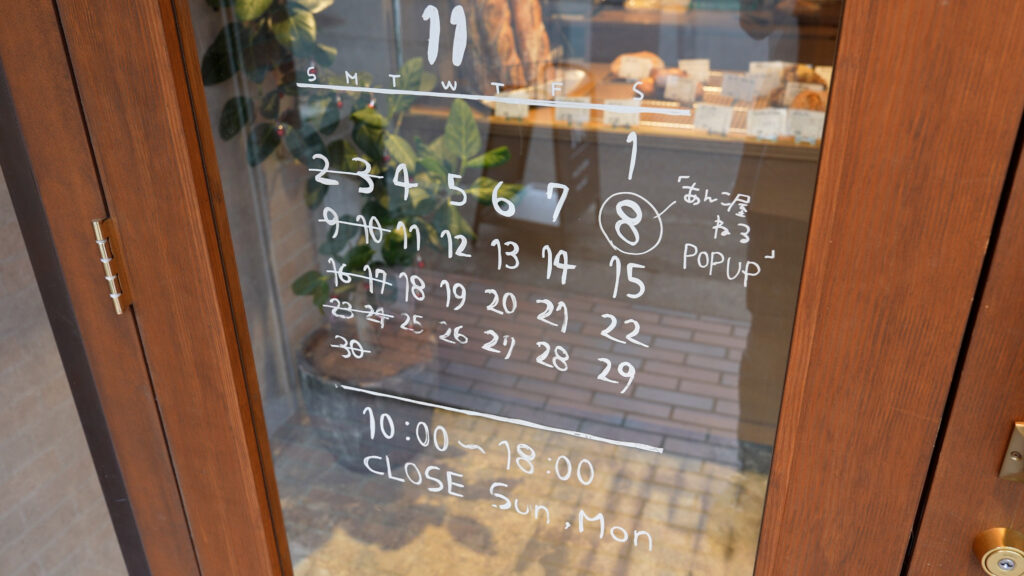 11
S M T W T F S
1
2 3 4 5 6 7 8
「あんこ屋
ねろ
POPUP」
9 10 11 12 13 14 15
16 17 18 19 20 21 22
23 24 25 26 27 28 29
30
10:00~18:00
CLOSE Sun, Mon